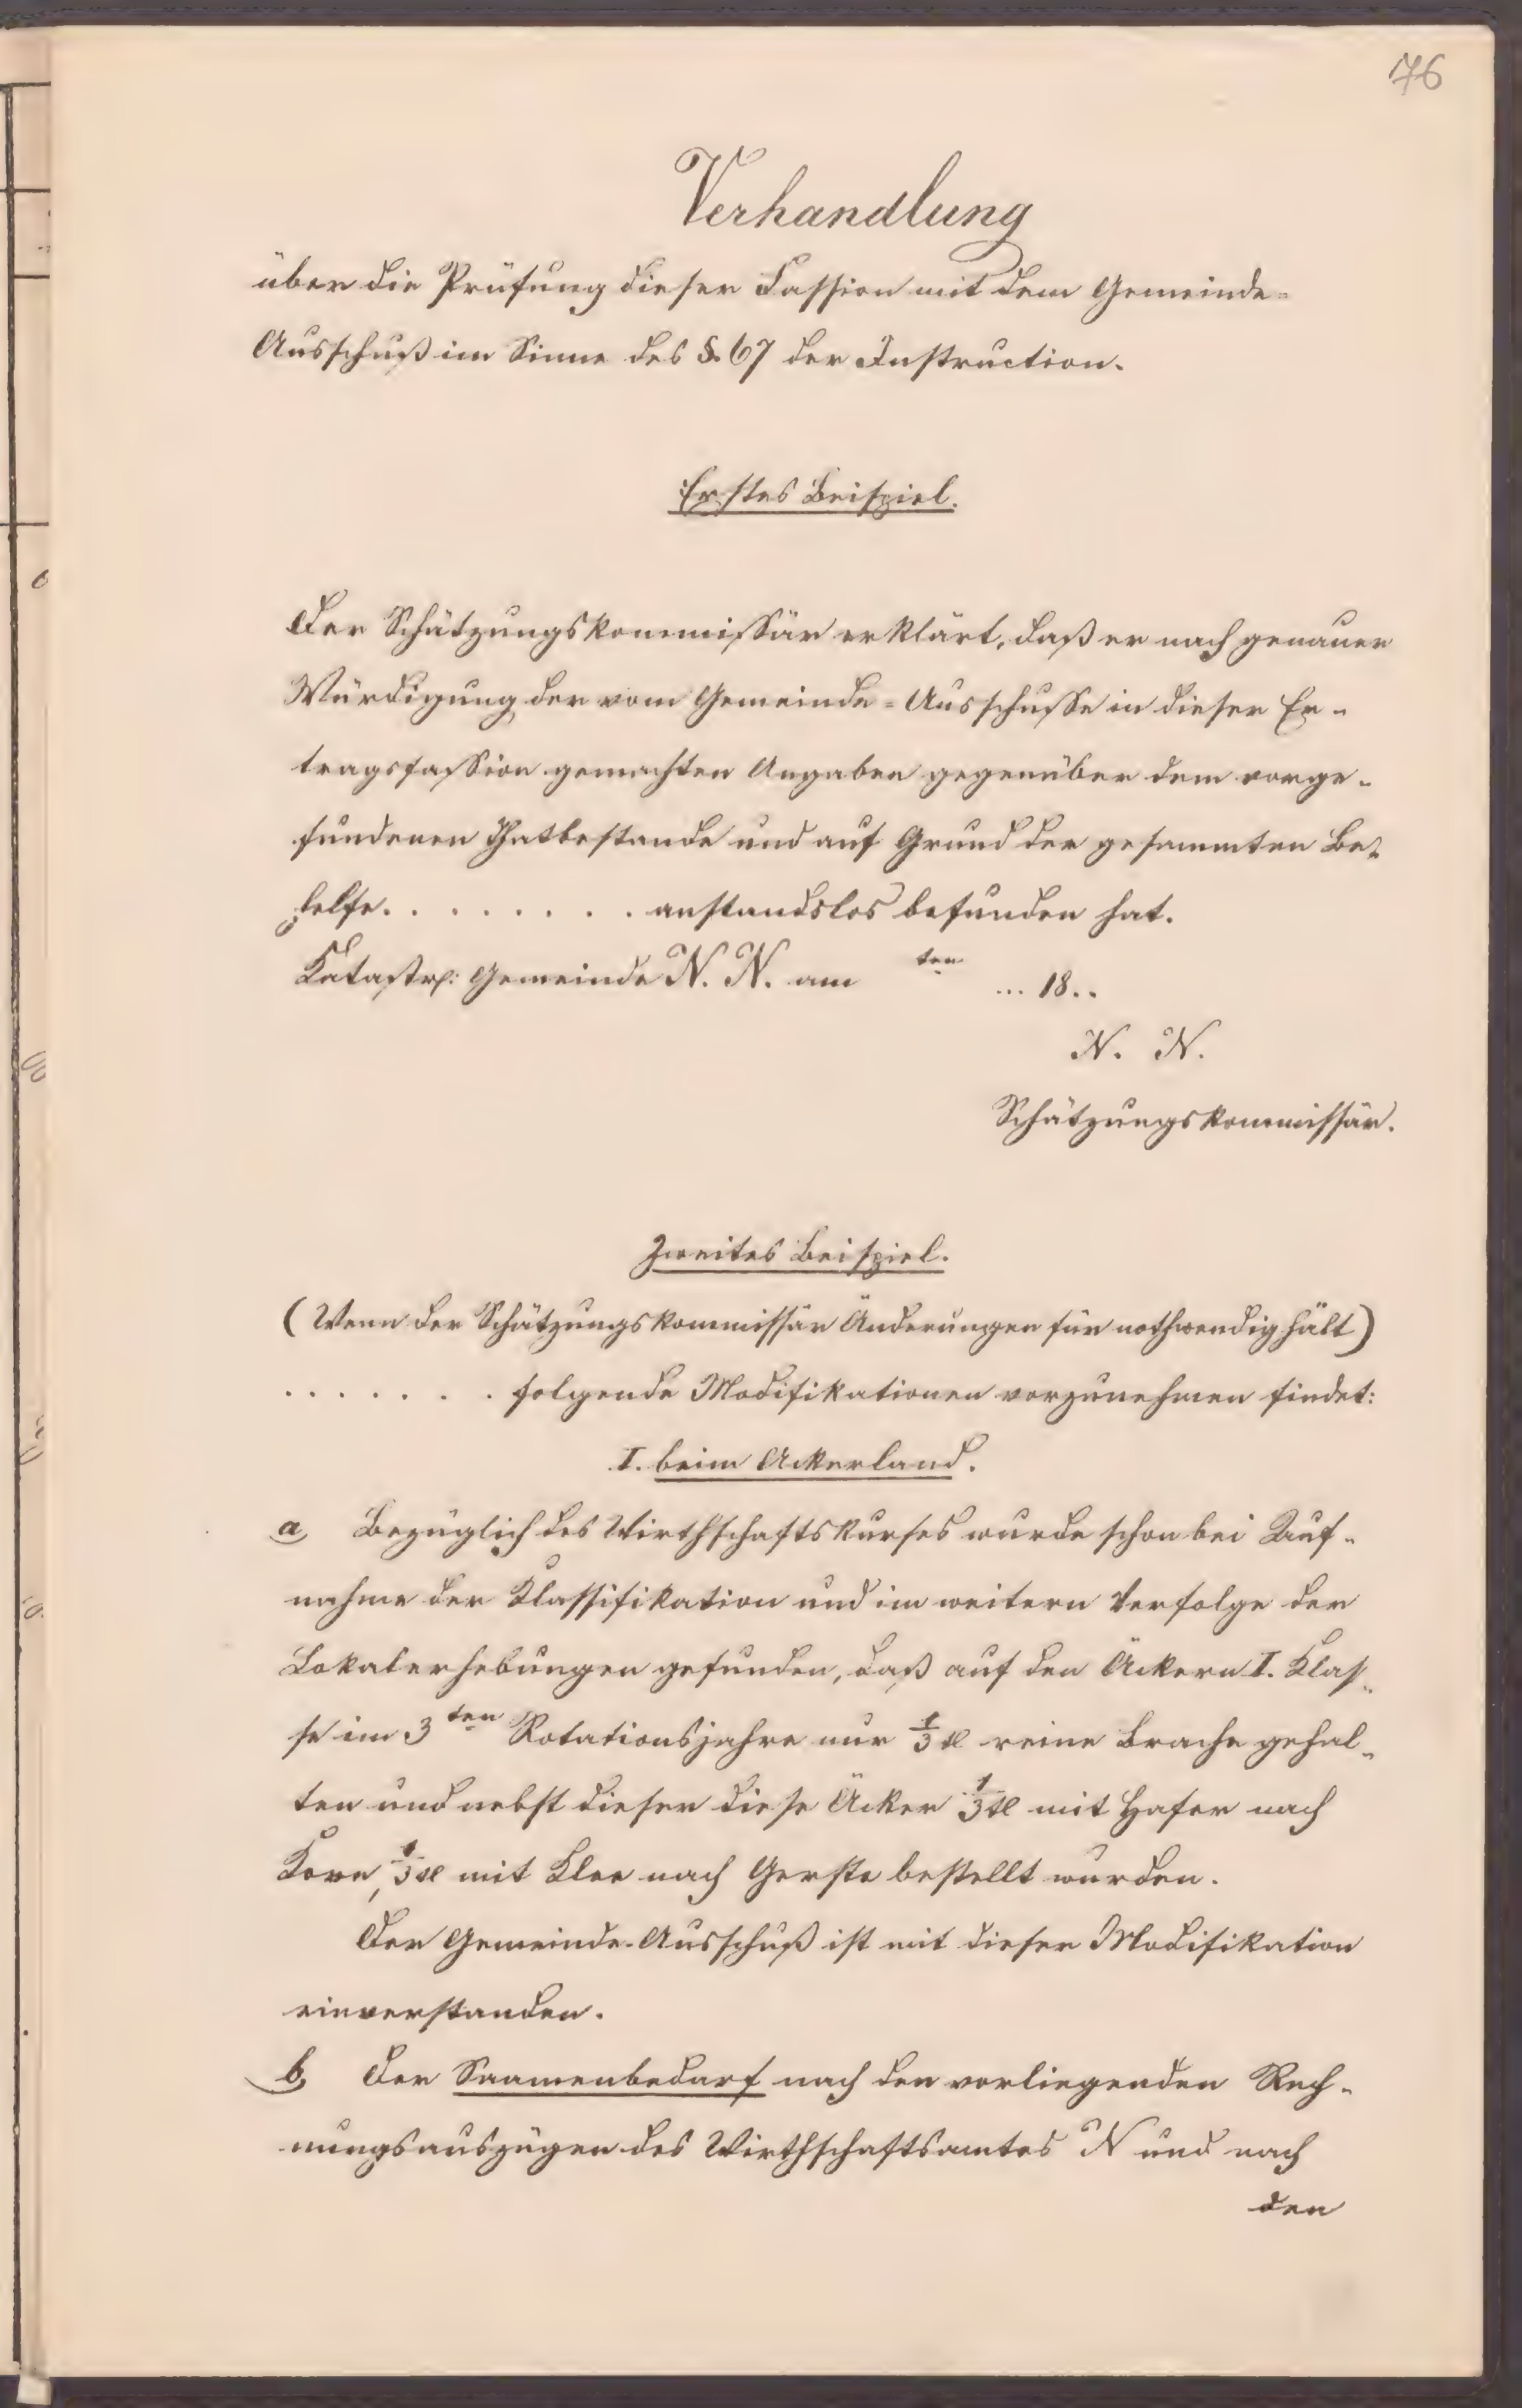 76
Verhandlung
über die Prüfung dieser Fassion mit dem Gemeinde=
Ausschuß im Sinne des §. 67 der Instruction.
Erstes Beispiel.
Der Schätzungskommissär erklärt, daß er nach genauer
Würdigung der vom Gemeinde=Ausschusse in dieser Er-
tragsfassion gemachten Angaben gegenüber dem vorge-
fundenen Thatbestande und auf Grund der gesammten Be-
helfe. . . . . . . . . anstandslos befunden hat.
Katastr: Gemeinde N. N. am ten ... 18..
N. N.
Schätzungskommissär.
Zweites Beispiel.
(Wenn der Schätzungskommissär Änderungen für nothwendig hält)
. . . . . . . . folgende Modifikationen vorzunehmen findet:
I. beim Ackerland.
a, Bezüglich des Wirthschaftskurses wurde schon bei Auf-
nahme der Klassifikation und im weitern Verfolge der
Lokalerhebungen gefunden, daß auf den Äckern I. Klas-
se im 3ten Rotationsjahre nur 1/3tl reine Brache gehal-
ten und nebst dieser diese Äcker 1/3tl mit Hafer nach
Korn, 1/3tl mit Klee nach Gerste bestellt wurden.
Der Gemeinde-Ausschuß ist mit dieser Modifikation
einverstanden.
b, Der Saamenbedarf nach den vorliegenden Rech-
nungsauszügen des Wirthschaftsamtes N und nach
den